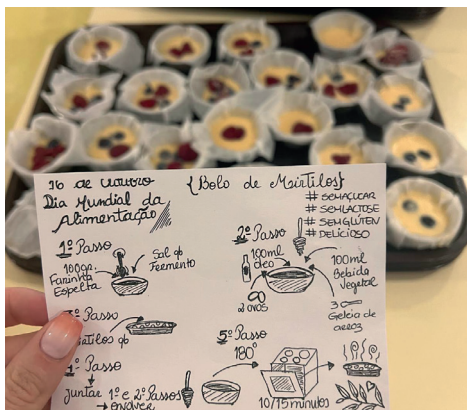 16 de outubro
Dia Mundial da
Alimentação
{Bolo de Mirtilos}
# SEM AÇUCAR
# SEM LACTOSE
# SEM GLÚTEN
# DELICIOSO
1º Passo
100gr.
Farinha
Espelta
Sal qb
Fermento
2º Passo
100ml
óleo
2 ovos
100ml
Bebida
Vegetal
3
Geleia de
arroz
3º Passo
qb
Passo
Juntar 1º e 2º Passos
→ envolver
5º Passo
180°
10/15 minutos